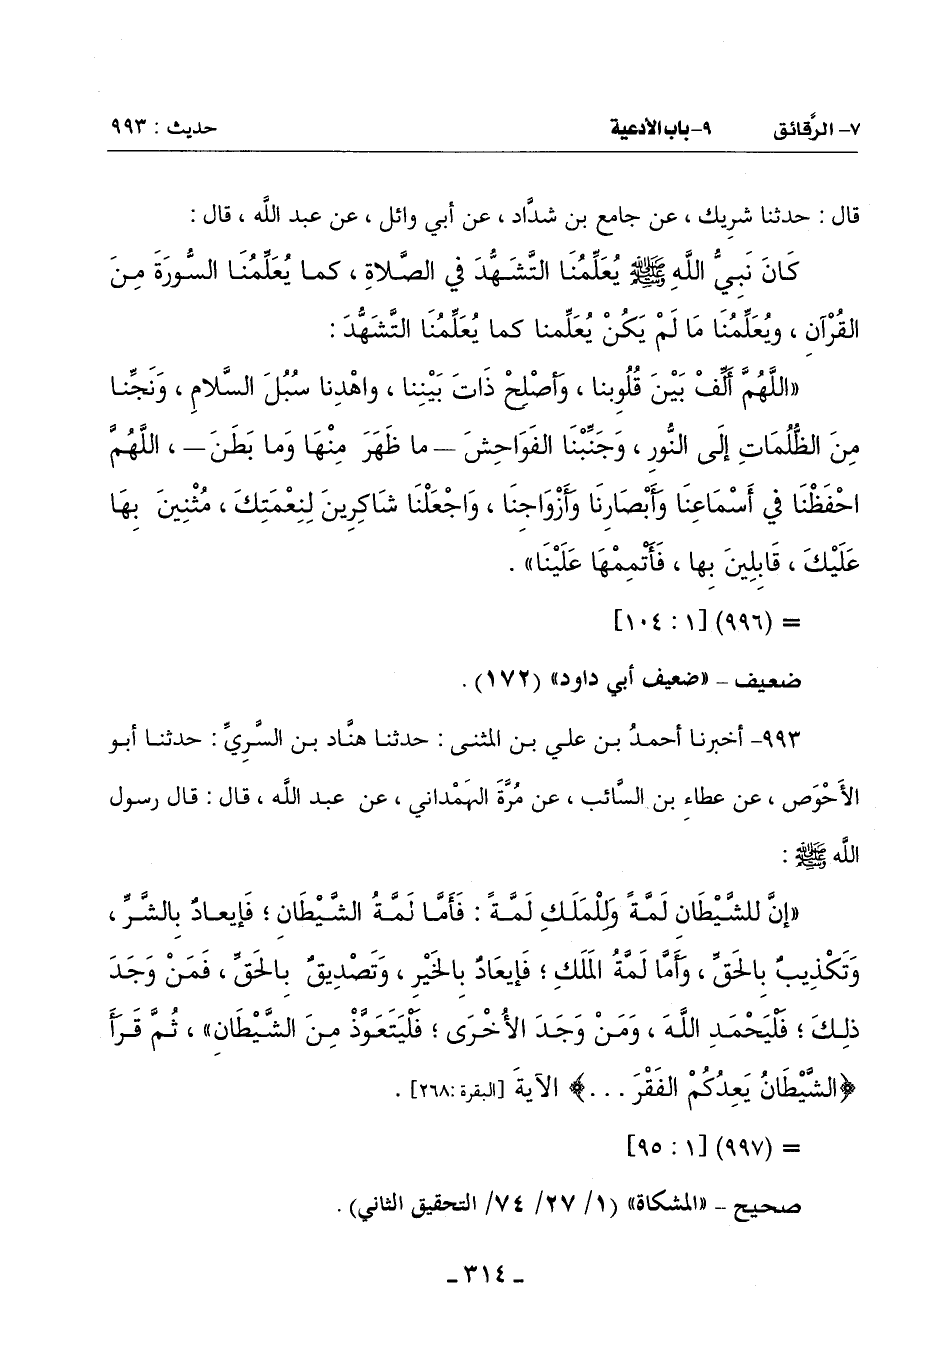 ٧- الرَّقائق ٩-باب الأدعية حديث : ٩٩٣
قال : حدثنا شريك ، عن جامع بن شدَّاد ، عن أبي وائل ، عن عبد اللَّه ، قال :
كَانَ نَبِيُّ اللَّهِ ﷺ يُعَلِّمُنَا التَّشَهُّدَ فِي الصَّلاةِ ، كما يُعَلِّمُنَا السُّورَةَ مِنَ
القُرْآنِ ، ويُعَلِّمُنَا مَا لَمْ يَكُنْ يُعَلِّمنا كما يُعَلِّمُنَا التَّشَهُّدَ :
«اللَّهُمَّ أَلِّفْ بَيْنَ قُلُوبِنا ، وَأَصْلِحْ ذَاتَ بَيْنِنا ، واهْدِنا سُبُلَ السَّلامِ ، وَنَجِّنا
مِنَ الظُّلُمَاتِ إِلَى النُّورِ ، وَجَنِّبْنَا الفَوَاحِشَ – ما ظَهَرَ مِنْهَا وَما بَطَنَ – ، اللَّهُمَّ
احْفَظْنَا فِي أَسْمَاعِنَا وَأَبْصَارِنَا وَأَزْوَاجِنَا ، وَاجْعَلْنَا شَاكِرِينَ لِنِعْمَتِكَ ، مُثْنِينَ بِهَا
عَلَيْكَ ، قَابِلِينَ بِها ، فَأَتْمِمْهَا عَلَيْنَا» .
= (٩٩٦) [١ : ١٠٤]
ضعيف – «ضعيف أبي داود» (١٧٢) .
٩٩٣- أخبرنا أحمدُ بن علي بن المثنى : حدثنا هنَّاد بن السَّرِيِّ : حدثنا أبو
الأَحْوَصِ ، عن عطاءِ بن السَّائب ، عن مُرَّةَ الهَمْداني ، عن عبد اللَّه ، قال : قال رسول
اللَّه ﷺ :
«إنَّ للشَّيْطَانِ لَمَّةً وَلِلْمَلَكِ لَمَّةً : فَأَمَّا لَمَّةُ الشَّيْطَانِ ؛ فَإيعادٌ بالشَّرِّ ،
وَتَكْذِيبٌ بِالحَقِّ ، وَأَمَّا لَمَّةُ المَلَكِ ؛ فَإيعَادٌ بالخَيْرِ ، وَتَصْدِيقٌ بِالحَقِّ ، فَمَنْ وَجَدَ
ذلِكَ ؛ فَلْيَحْمَدِ اللَّهَ ، وَمَنْ وَجَدَ الأُخْرَى ؛ فَلْيَتَعَوَّذْ مِنَ الشَّيْطَانِ» ، ثُمَّ قَرَأَ
﴿الشَّيْطَانُ يَعِدُكُمْ الفَقْرَ . . .﴾ الآيةَ [البقرة :٢٦٨] .
= (٩٩٧) [١ : ٩٥]
صحيح – «المشكاة» (١/ ٢٧/ ٧٤/ التحقيق الثاني) .
ـ ٣١٤ ـ